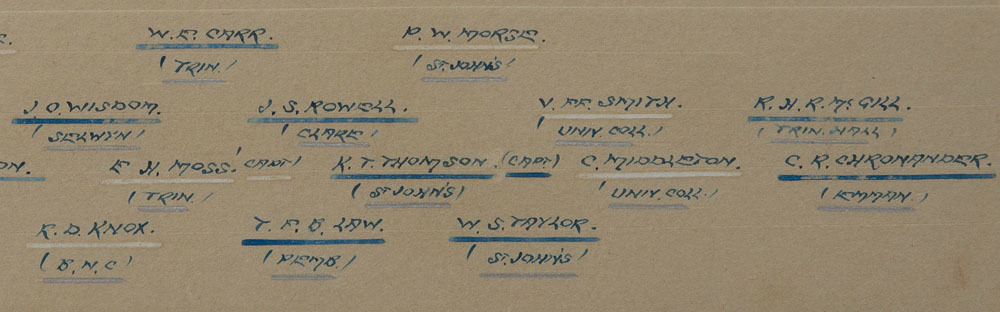 W. E. CARR. P. W. MORSE.
(TRIN.) (ST. JOHN'S)
J. O. WISDOM. J. S. ROWELL. V. FF. SMITH. R. H. R. McGILL.
(SELWYN) (CLARE) (UNIV. COLL.) (TRIN. HALL)
ON. E. H. MOSS. (CAPT) K. T. THOMSON. (CAPT) C. MIDDLETON. C. R.
(TRIN.) (ST JOHN'S) (UNIV. COLL.) (EMMAN.)
R. D. KNOX. T. F. B. LAW. W. S. TAYLOR.
(B. N. C) (PEMB.) (ST. JOHN'S)